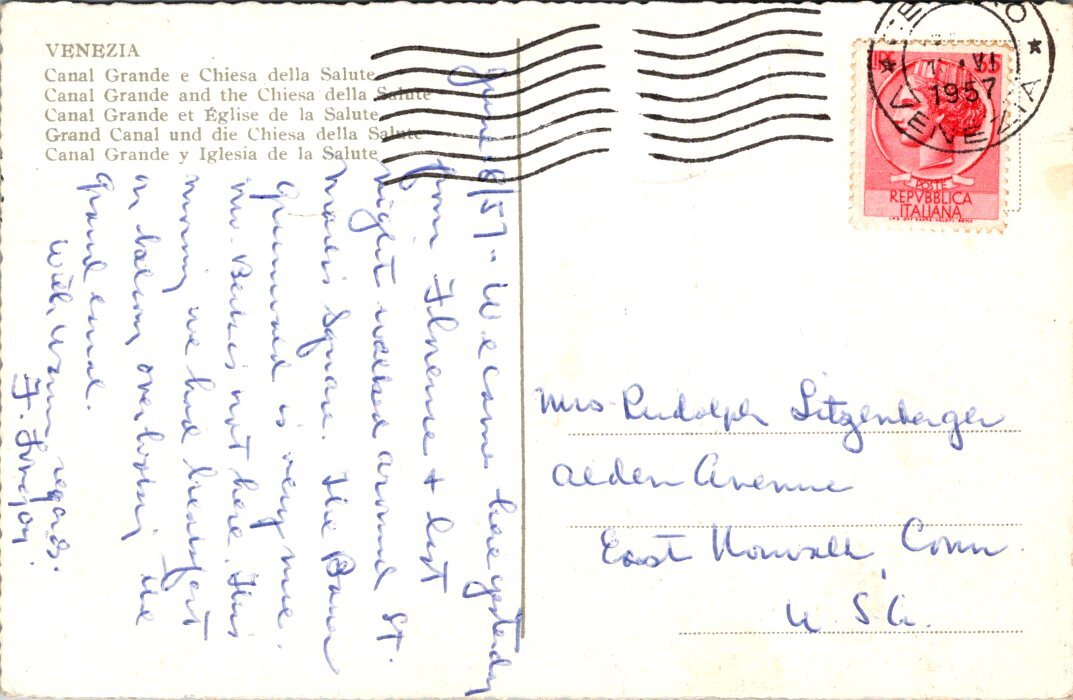 VENEZIA
Canal Grande e Chiesa della Salute
Canal Grande and the Chiesa della Salute
Canal Grande et Église de la Salute
Grand Canal und die Chiesa della Salute
Canal Grande y Iglesia de la Salute
June 18/57 - We came here yesterday
from Florence & last
night walked around St.
Mark's Square. The Bauer
Grunwald is very nice.
Mr. is not here. This
morning we had breakfast
on balcony overlooking the
grand canal.
With warm regards.
F.
VENEZIA
VI
1957
LIRE
POSTE
REPVBBLICA
ITALIANA
Mrs Rudolph Litzenberger
Alden Avenue
East Norwalk, Conn.
U.S.A.